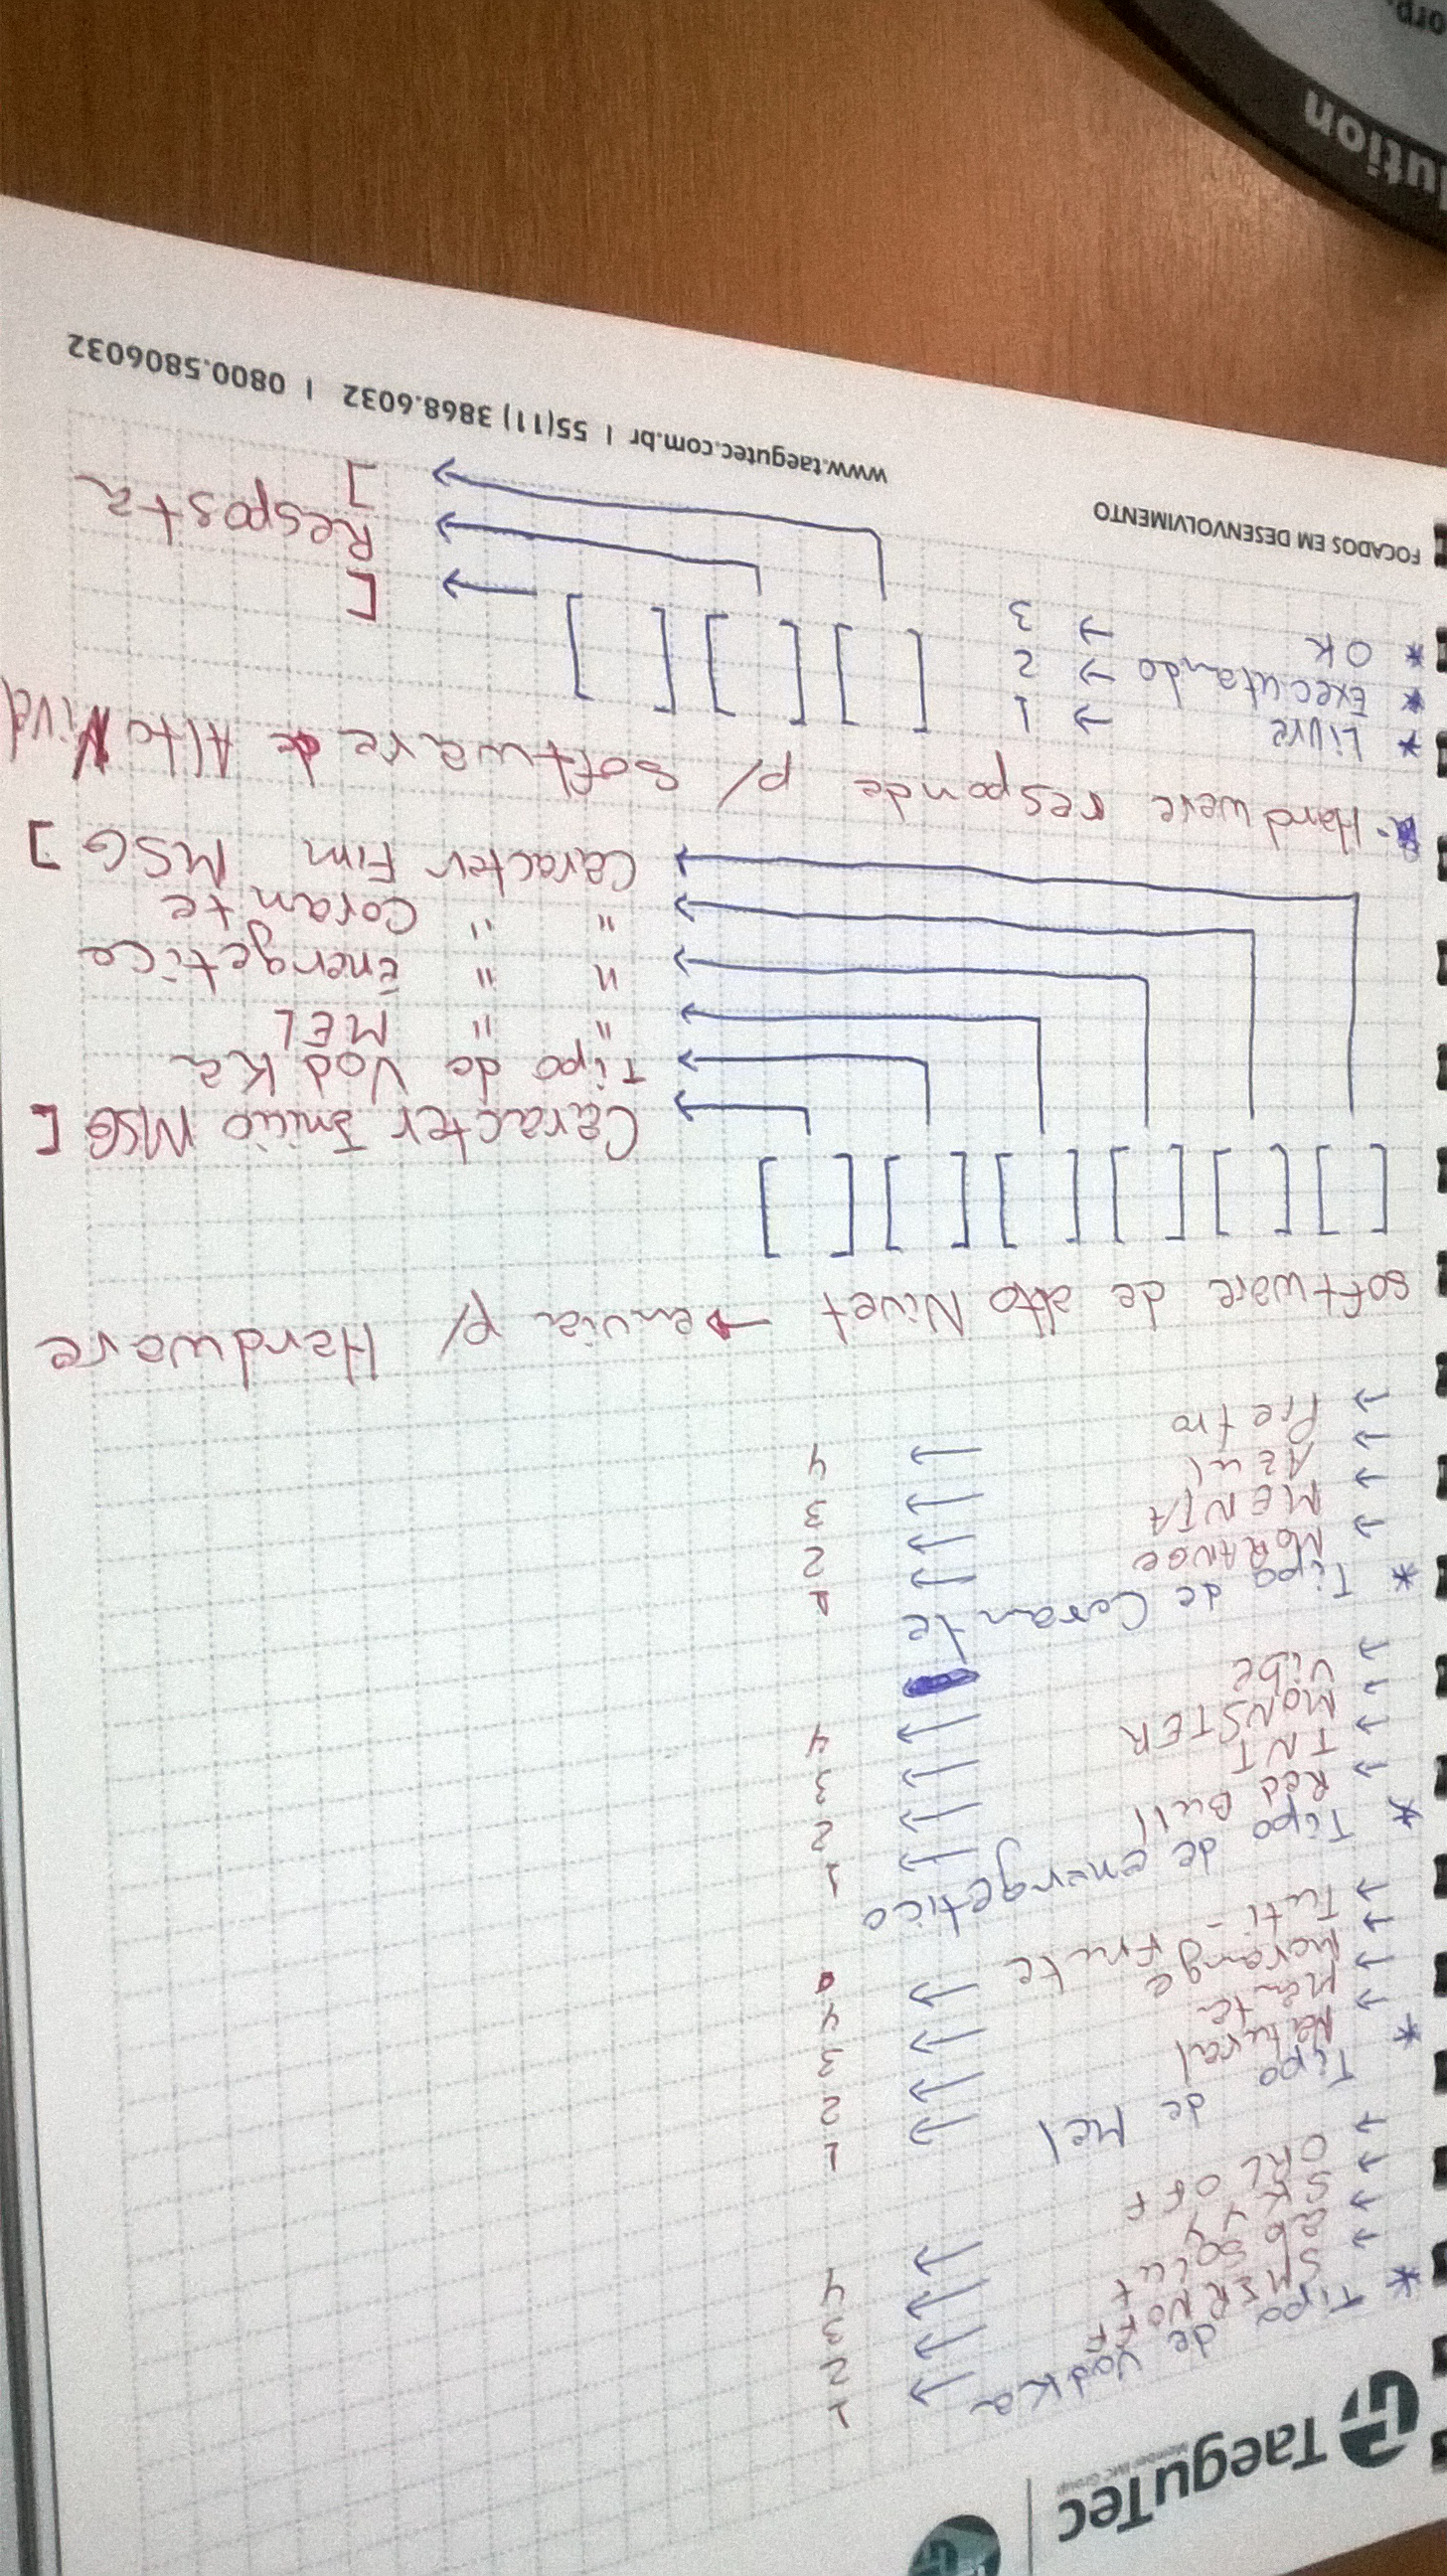 TaeguTec
Member IMC Group
* Tipo de Vodka
→ SMIRNOFF → 1
→ absolut → 2
→ SKYY → 3
→ ORLOFF → 4
* Tipo de Mel
→ Natural → 1
→ Menta → 2
→ Morango → 3
→ Tuti-Frute → 4
* Tipo de energetico
→ Red Bull → 1
→ TNT → 2
→ MONSTER → 3
→ Vibe → 4
* Tipo de Corante
→ MORANGO → 1
→ MENTA → 2
→ Azul → 3
→ Pretro → 4
software de alto Nivel → envia p/ Hardware
[ ] [ ] [ ] [ ] [ ] [ ]
→ Caracter Inicio MSG [
→ Tipo de Vodka
→ " " MEL
→ " " Energetico
→ " " Corante
→ Caracter Fim MSG ]
Hardwere responde p/ software de Alto Nivel
* Livre → 1
* Executando → 2
* OK → 3
[ ] [ ] [ ]
→ [
→ Resposta
→ ]
FOCADOS EM DESENVOLVIMENTO
www.taegutec.com.br | 55(11) 3868.6032 | 0800.5806032
lution
orp.